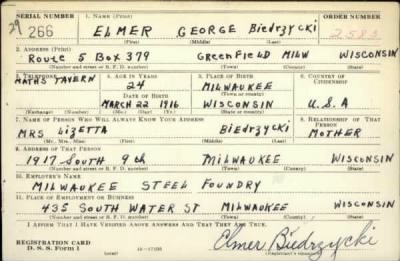 SERIAL NUMBER 1. NAME (Print) ORDER NUMBER
29 266 ELMER GEORGE Biedrzycki 2585
(First) (Middle) (Last)
2. ADDRESS (Print)
Route 5 Box 379 GreenField MILW WISCONSIN
(Number and street or R. F. D. number) (Town) (County) (State)
3. TELEPHONE 4. AGE IN YEARS 5. PLACE OF BIRTH 6. COUNTRY OF CITIZENSHIP
MATHS TAVERN 24 MILWAUKEE
DATE OF BIRTH (Town or county)
MARCH 22 1916 WISCONSIN U.S.A
(Exchange) (Number) (Mo.) (Day) (Yr.) (State or country)
7. NAME OF PERSON WHO WILL ALWAYS KNOW YOUR ADDRESS 8. RELATIONSHIP OF THAT PERSON
MRS LIZETTA Biedrzycki MOTHER
(Mr., Mrs., Miss) (First) (Middle) (Last)
9. ADDRESS OF THAT PERSON
1917 SOUTH 9th MILWAUKEE WISCONSIN
(Number and street or R. F. D. number) (Town) (County) (State)
10. EMPLOYER'S NAME
MILWAUKEE STEEL FOUNDRY
11. PLACE OF EMPLOYMENT OR BUSINESS
435 SOUTH WATER ST MILWAUKEE WISCONSIN
(Number and street or R. F. D. number) (Town) (County) (State)
I AFFIRM THAT I HAVE VERIFIED ABOVE ANSWERS AND THAT THEY ARE TRUE.
REGISTRATION CARD
D. S. S. Form 1 16-17105 Elmer Biedrzycki
(over) (Registrant's signature)